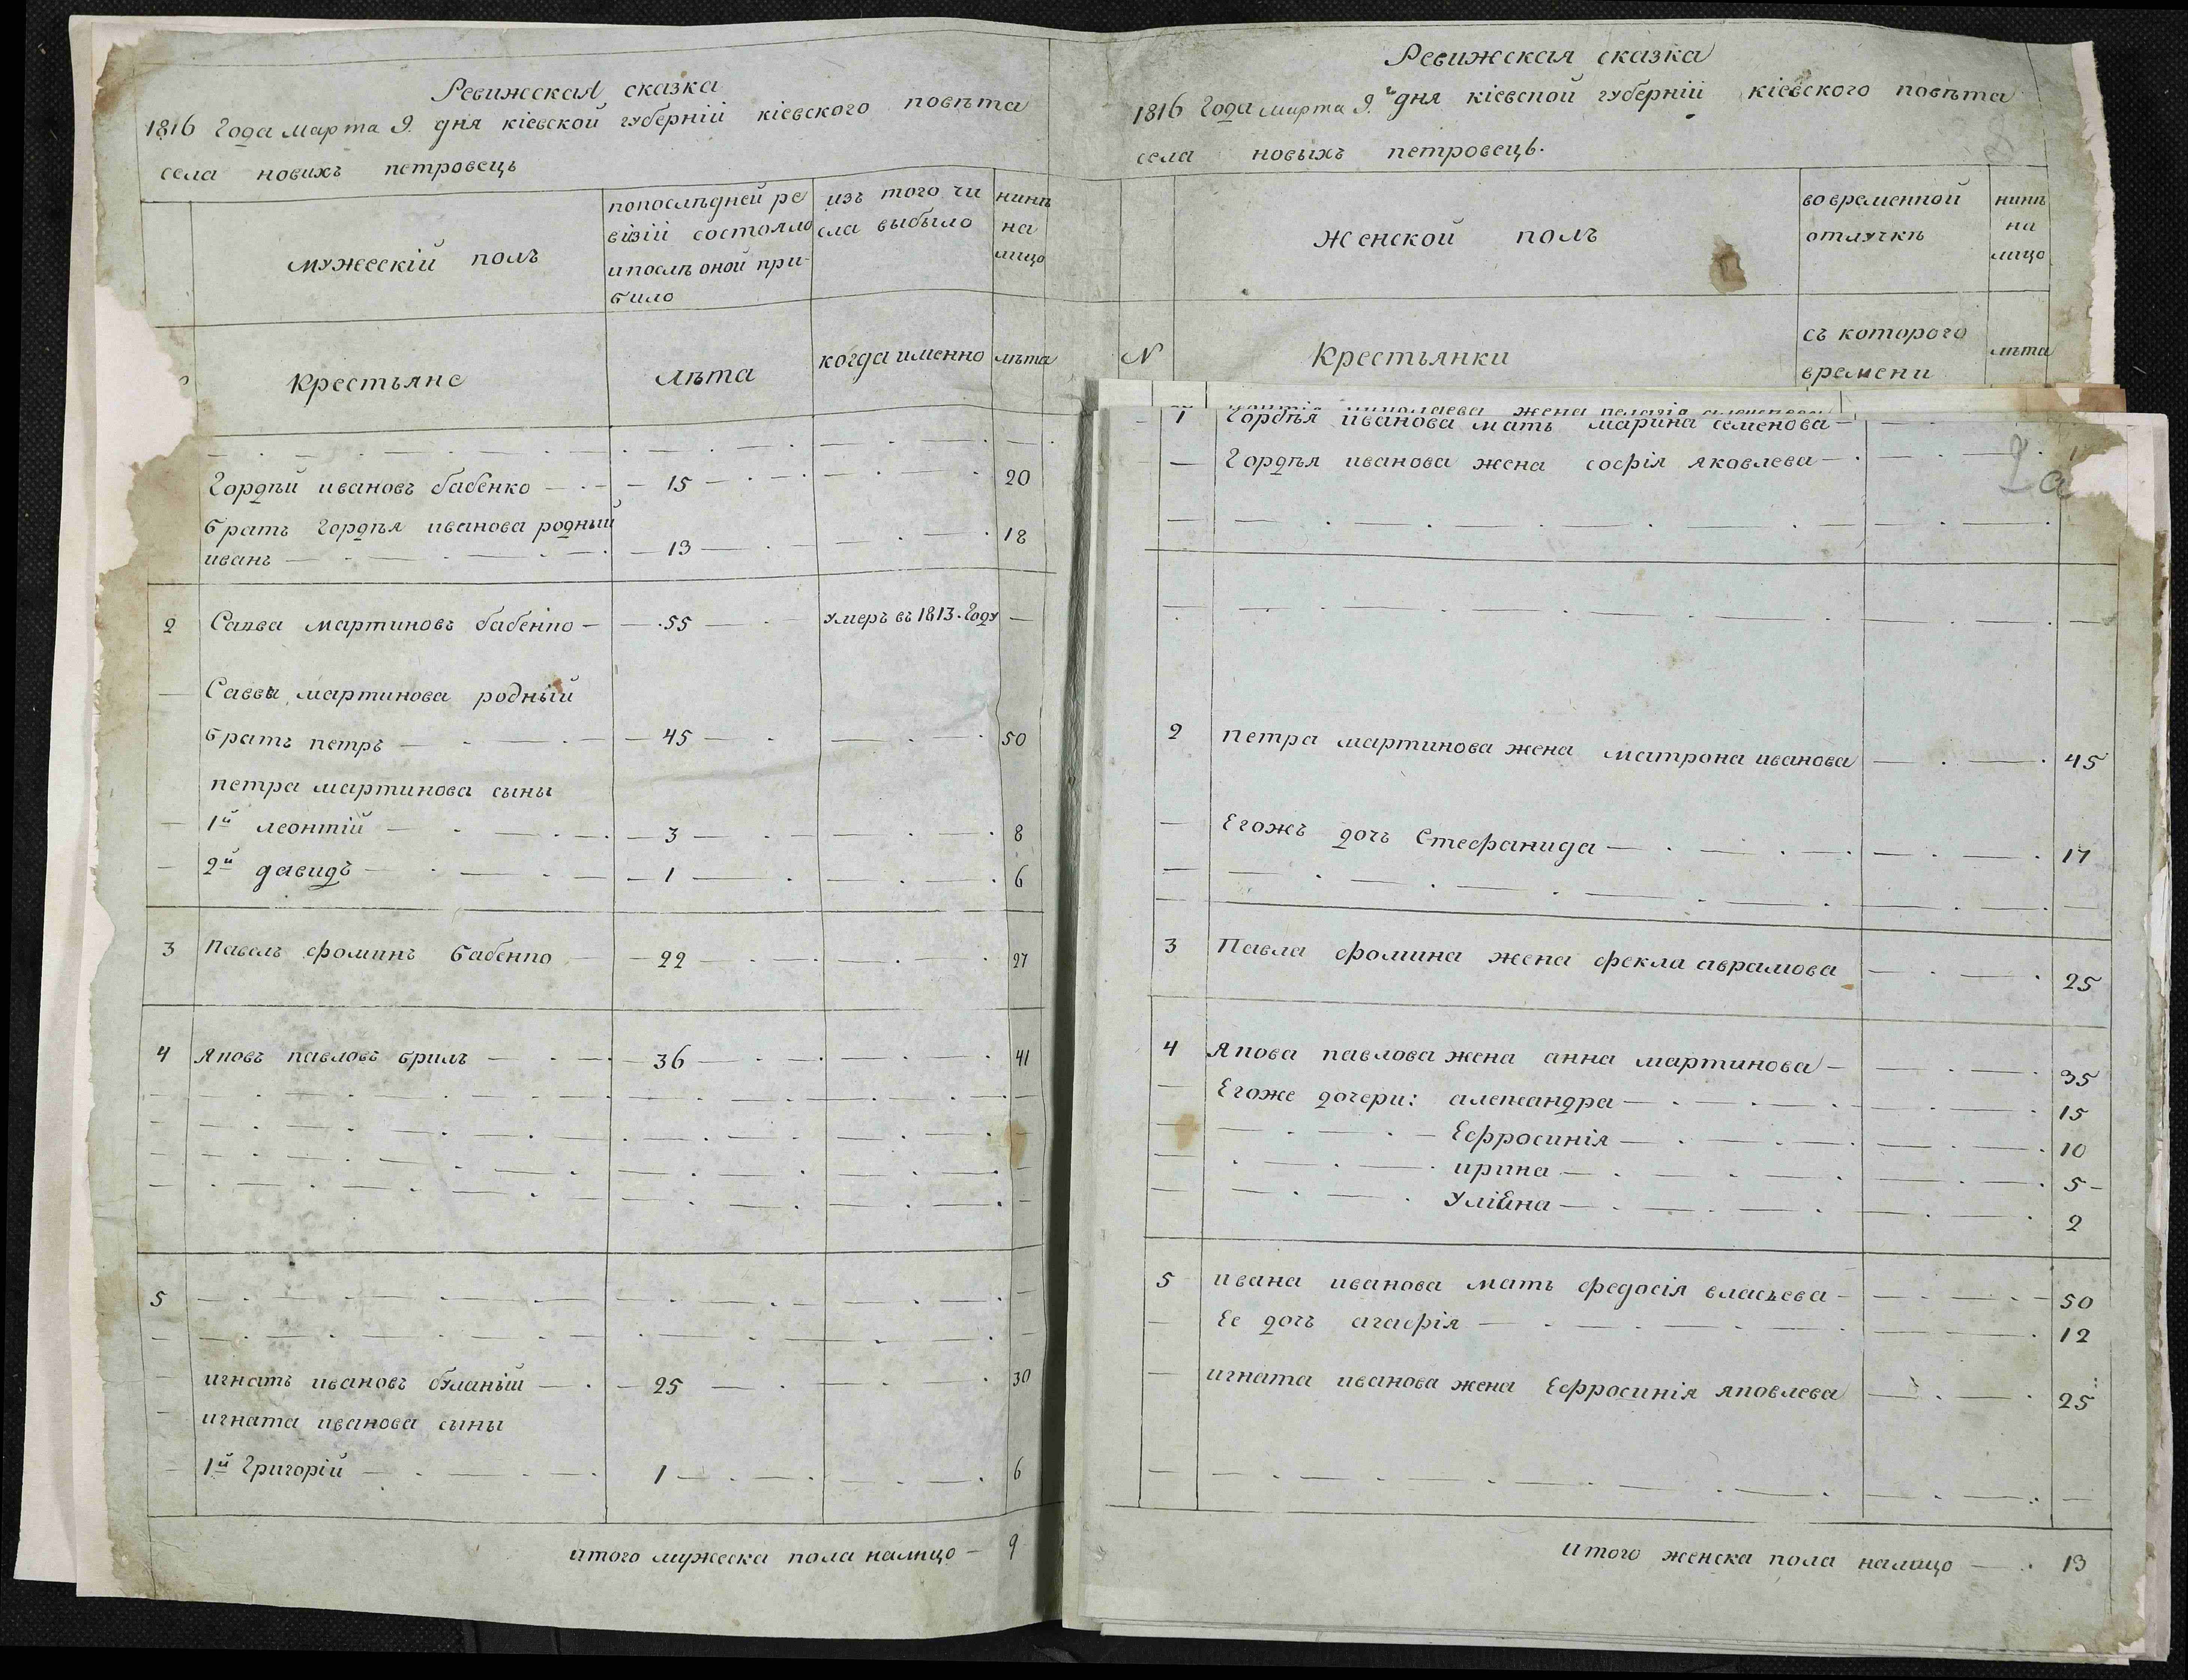 Ревижская сказка
1816 Года марта 9. дня кіевской губерніи кіевского повѣта
села новихъ петровець
мужескій полъ
попослѣдней ре
візіи состояло
ипослѣ оной при-
било
изъ того чи
сла выбыло
нинѣ
на
лицо
Крестьяне
лѣта
когда именно
лѣта
Гордѣй ивановъ бабенко — 15 — 20
братъ Гордѣя иванова родный
иванъ — 13 — 18
2 Савва мартиновъ бабенко — 55 — умеръ въ 1813. Году —
Саввы мартинова родный
братъ петръ — 45 — 50
петра мартинова сыны
1й леонтій — 3 — 8
2й давидъ — 1 — 6
3 Павелъ фоминъ бабенко — 22 — 27
4 Яковъ павловъ брилъ — 36 — 41
5
игнатъ ивановъ буланый — 25 — 30
игната иванова сыны
1й Григорій — 1 — 6
итого мужеска пола налицо — 9
Ревижская сказка
1816 Года марта 9.й дня кіевской губерніи кіевского повѣта
села новыхъ петровець.
Женской полъ
вовременной
отлучкѣ
нинѣ
на
лицо
N
Крестьянки
съ которого
времени
лѣта
жена
1 Гордѣя иванова мать марина семенова —
— Гордѣя иванова жена софія яковлева —
2а
2 петра мартинова жена матрона иванова — 45
— Егожъ дочь Стефанида — 17
3 Павла фомина жена фекла аврамова — 25
4 Якова павлова жена анна мартинова — 35
Егоже дочери: александра — 15
Ефросинія — 10
ирина — 5 -
Уліяна — 2
5 ивана иванова мать федосія власьева — 50
— Ее дочь агафія — 12
— игната иванова жена Ефросинія яковлева — 25
итого женска пола налицо — 13